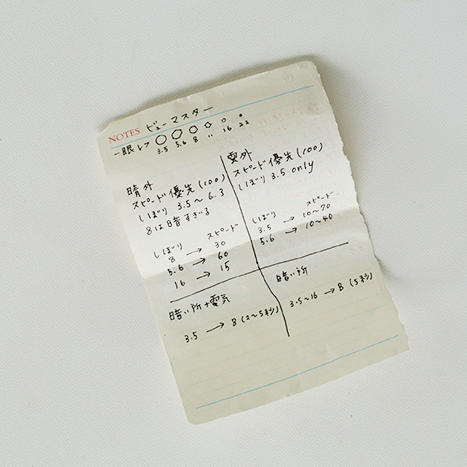 NOTES ビューマスター
一眼レフ
3.5 5.6 8 11 16 22
晴外
スピード優先(100)
しぼり 3.5〜6.3
8は暗すぎる
しぼり スピード
8 → 30
5.6 → 60
16 → 15
曇外
スピード優先(100)
しぼり 3.5 only
しぼり スピード
3.5 → 10〜70
5.6 → 10〜40
暗い所+電気
3.5 → B(2〜5秒)
暗い所
3.5〜16 → B(5秒)